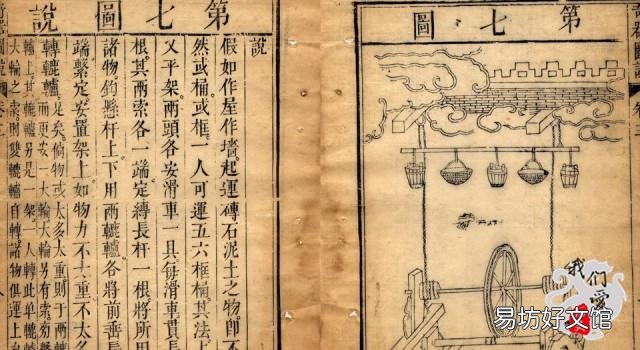 第七圖
第七圖說
說
假如作屋作墻起運磚石泥土之物卽不
然或桶或框一人可運五六框桶其法上
又平架兩頭各安滑車一具每滑車貫長
根其兩索各一端定縛長杆一根將所用
諸物鈎懸杆上下用兩轆轤各將前垂長
端繫定安置架上如物力不大重不太多
轉轆轤足矣倘物或太多太重則于兩
轆轤而更安一大輪大輪另有索
轤上其轆轤另是一架一人轉此單轆轤
大輪之索則雙轆轤自轉諸物俱運上
我们爱
易坊好文馆